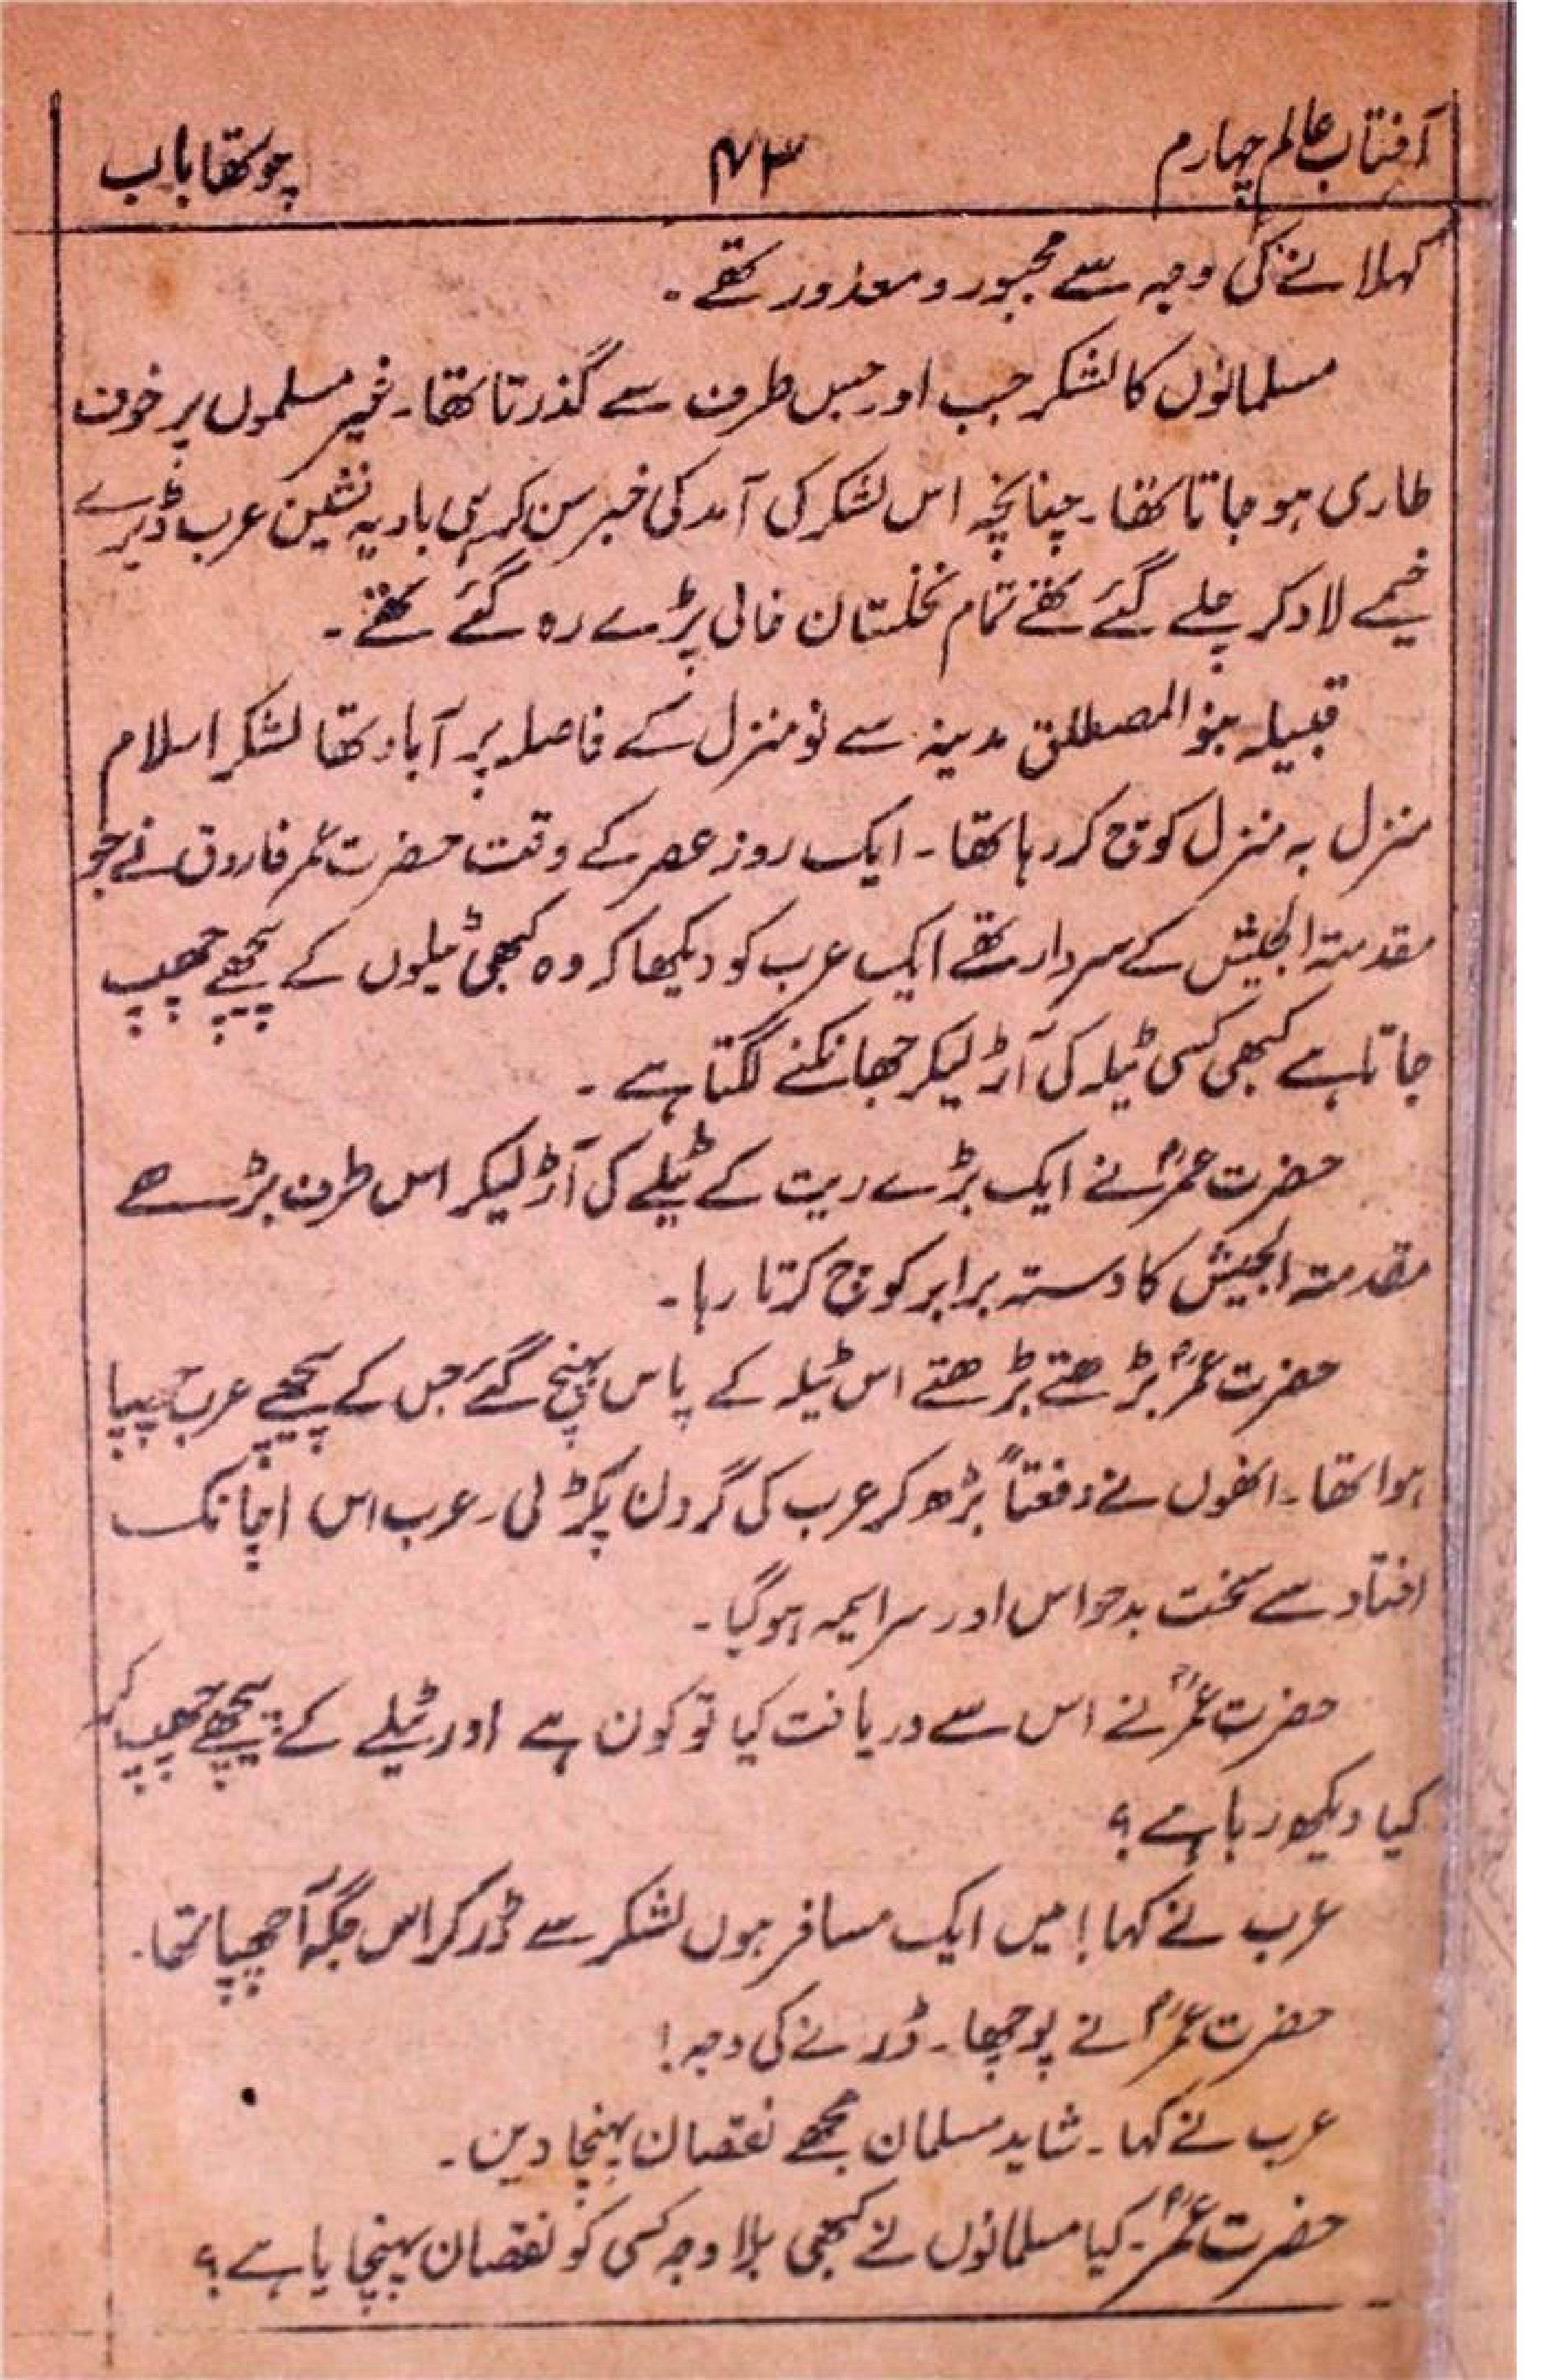 آفتاب عالم چہارم ۴۷۳ چوتھا باب
کہلانے کی وجہ سے مجبور و معذور تھے۔
مسلمانوں کا لشکر جب اور جس طرف سے گذرتا تھا۔ غیر مسلموں پر خوف
طاری ہو جاتا تھا۔ چنانچہ اس لشکر کی آمد کی خبر سن کر ہی بادیہ نشین عرب ڈیرے
خیمے لاد کر چلے گئے تھے تمام نخلستان خالی پڑے رہ گئے تھے۔
قبیلہ بنو المصطلق مدینہ سے نو منزل کے فاصلہ پر آباد تھا لشکر اسلام
منزل بہ منزل کوچ کر رہا تھا۔ ایک روز عصر کے وقت حضرت عمر فاروق نے جو
مقدمتہ الجیش کے سردار تھے ایک عرب کو دیکھا کہ وہ کبھی ٹیلوں کے پیچھے چھپ
جاتا ہے کبھی کسی ٹیلہ کی آڑ لیکر جھانکنے لگتا ہے۔
حضرت عمرؓ نے ایک بڑے ریت کے ٹیلے کی آڑ لیکر اس طرف بڑھے
مقدمتہ الجیش کا دستہ برابر کوچ کرتا رہا۔
حضرت عمرؓ بڑھتے بڑھتے اس ٹیلہ کے پاس پہنچ گئے جس کے پیچھے عرب چھپا
ہوا تھا۔ انھوں نے دفعتاً بڑھ کر عرب کی گردن پکڑ لی۔ عرب اس اچانک
افتاد سے سخت بدحواس اور سراسیمہ ہو گیا۔
حضرت عمرؓ نے اس سے دریافت کیا تو کون ہے اور ٹیلے کے پیچھے چھپ کر
کیا دیکھ رہا ہے؟
عرب نے کہا! میں ایک مسافر ہوں لشکر سے ڈر کر اس جگہ آ چھپا تھا۔
حضرت عمرؓ نے پوچھا۔ ڈرنے کی وجہ!
عرب نے کہا۔ شاید مسلمان مجھے نقصان پہنچا دیں۔
حضرت عمرؓ۔ کیا مسلمانوں نے کبھی بلا وجہ کسی کو نقصان پہنچایا ہے؟